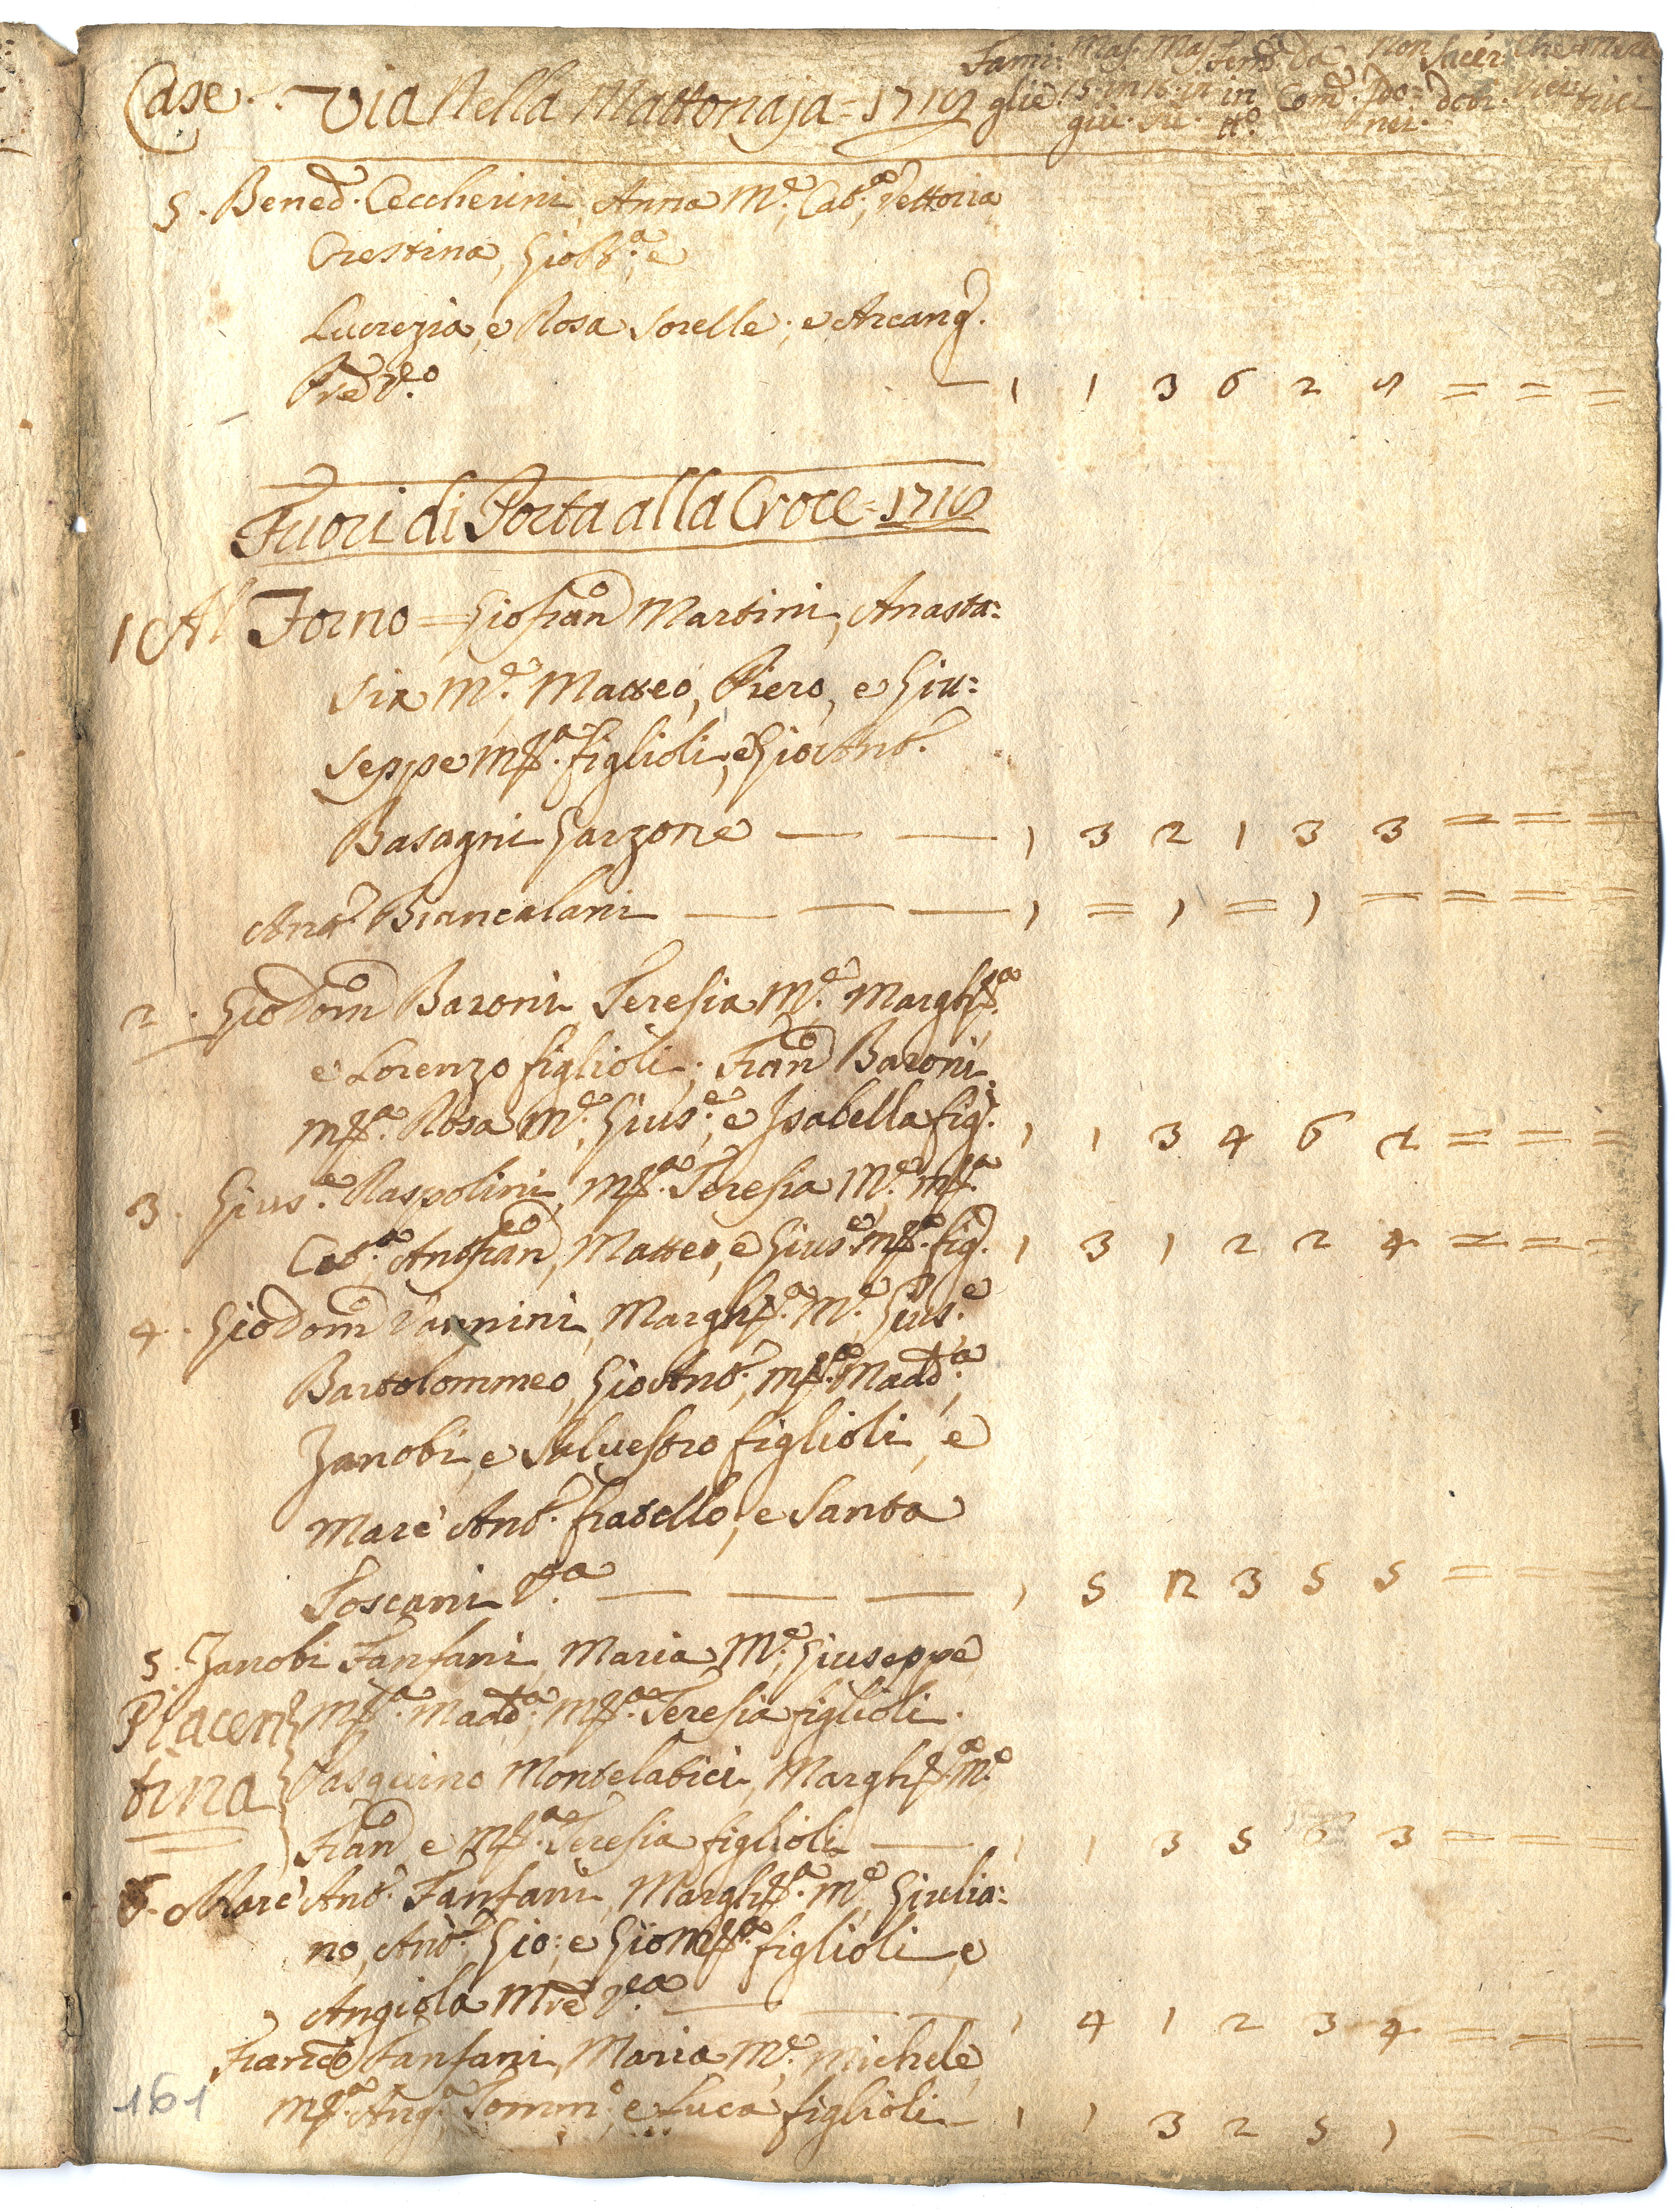 Case. Via Nella Mattonaja = 1719 Fami: Mas. Mas. Fem. da Non Sacer Che
glie 15 in 16 in in Com. Ido= doti.
giù. sù. tto. nei.
5. Bened. Ceccherini, Anna Me. Cata. Vettoria
Crestina, Gio Bta. e
Lucrezia, e Rosa Sorelle; e Arcang.
Pred. Vo. — 1 1 3 6 2 = = =
Fuori di Porta alla Croce = 1719
1 Al Forno = Gio Franco Martini, Anasta:
sia Me. Matteo, Piero, e Giu=
seppe Ma. figlioli, e Gio Ant.
Basagni Garzone — — 1 3 2 1 3 3 = = =
Ant. Biancalani — — — 1 = 1 = 1 = = = =
2. Gio Domo Baroni Teresia Me. Margha.
e Lorenzo figlioli; Franco Baroni
Ma. Rosa Me. Giuse. e Isabella fig. 1 1 3 4 6 2 = = =
3. Giuse. Raspolini, Ma. Teresia Me. Ma.
Cata. Ant Franco, Matteo, e Giuse. Ma. fig. 1 3 1 2 2 4 = = =
4. Gio Domo Vannini, Margha. Me. Giuse.
Bartolommeo, Gio Ant. Ma. Madda.
Zanobi, e Salvestro figlioli, e
Marc' Ant. fratello, e Santa
Toscani Va. — — — 1 5 2 3 5 5 = = =
5. Zanobi Fanfani Maria Me. Giuseppe
Piacen Ma. Madda. Ma. Teresia figlioli.
tina Pasquino Montelatici, Margha. Me.
Franco e Ma. Teresia figlioli — 1 1 3 5 6 3 = = =
6. Marc' Ant. Fanfani, Margha. Me. Giulia:
no, Ant. Gio: e Gio Ma. figlioli, e
Angiola Mre Va. — — — 1 4 1 2 3 4 = = =
Franco Fanfani, Maria Me. Michele,
Ma. Anga. Tommo. e Luca figlioli — 1 1 3 2 5 1 = = =
161